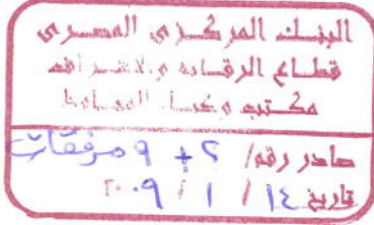 البنك المركزى المصرى
قطاع الرقابه والاشراف
مكتب وكيل المحافظ
صادر رقم/ ٢ + ٩ مرفقات
تاريخ ١٤ / ١ / ٢٠٠٩